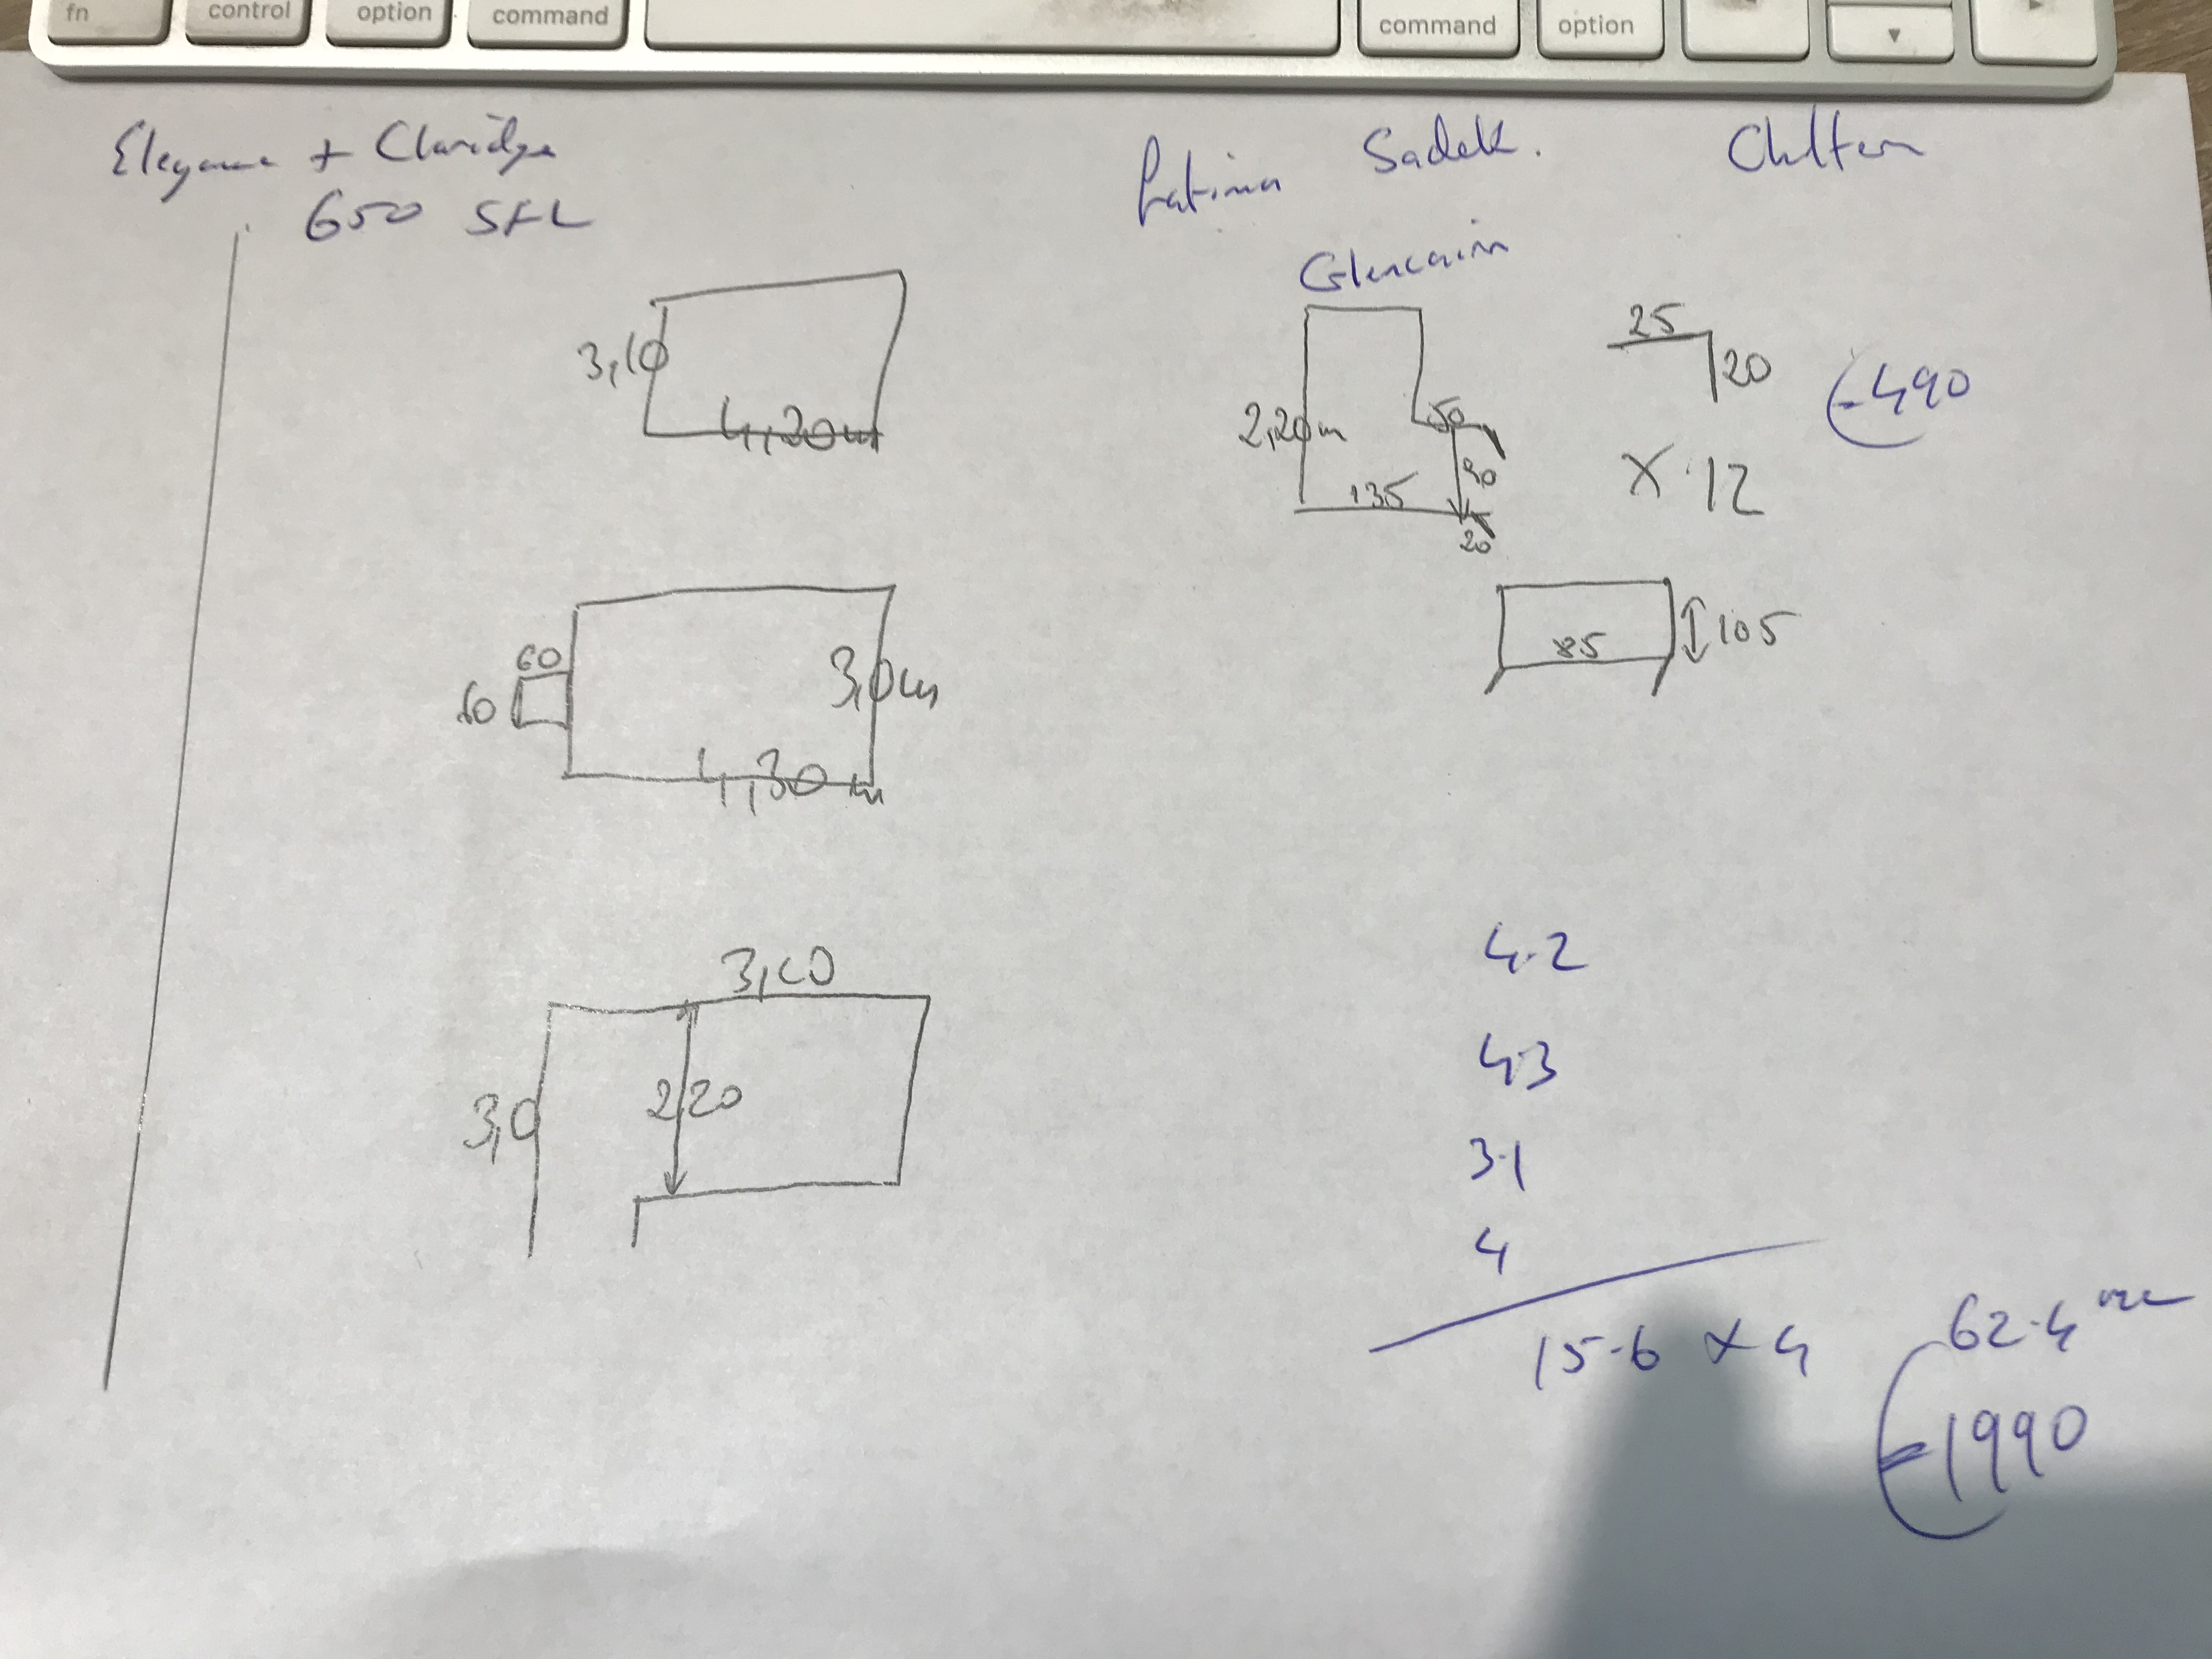 fn control option command command option
Elegance + Claridge
650 SFL
Fatima Sadek.
Glencairn
3,10
4,20m
2,20m
50
90
135
20
25
20
X 12
490
60
60
3,0m
4,30m
85
105
3,10
3,0
2,20
4.2
4.3
3.1
4
15.6 x 4
62.4
1990